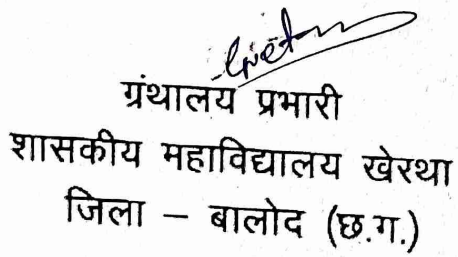 ग्रंथालय प्रभारी
शासकीय महाविद्यालय खेरथा
जिला – बालोद (छ.ग.)